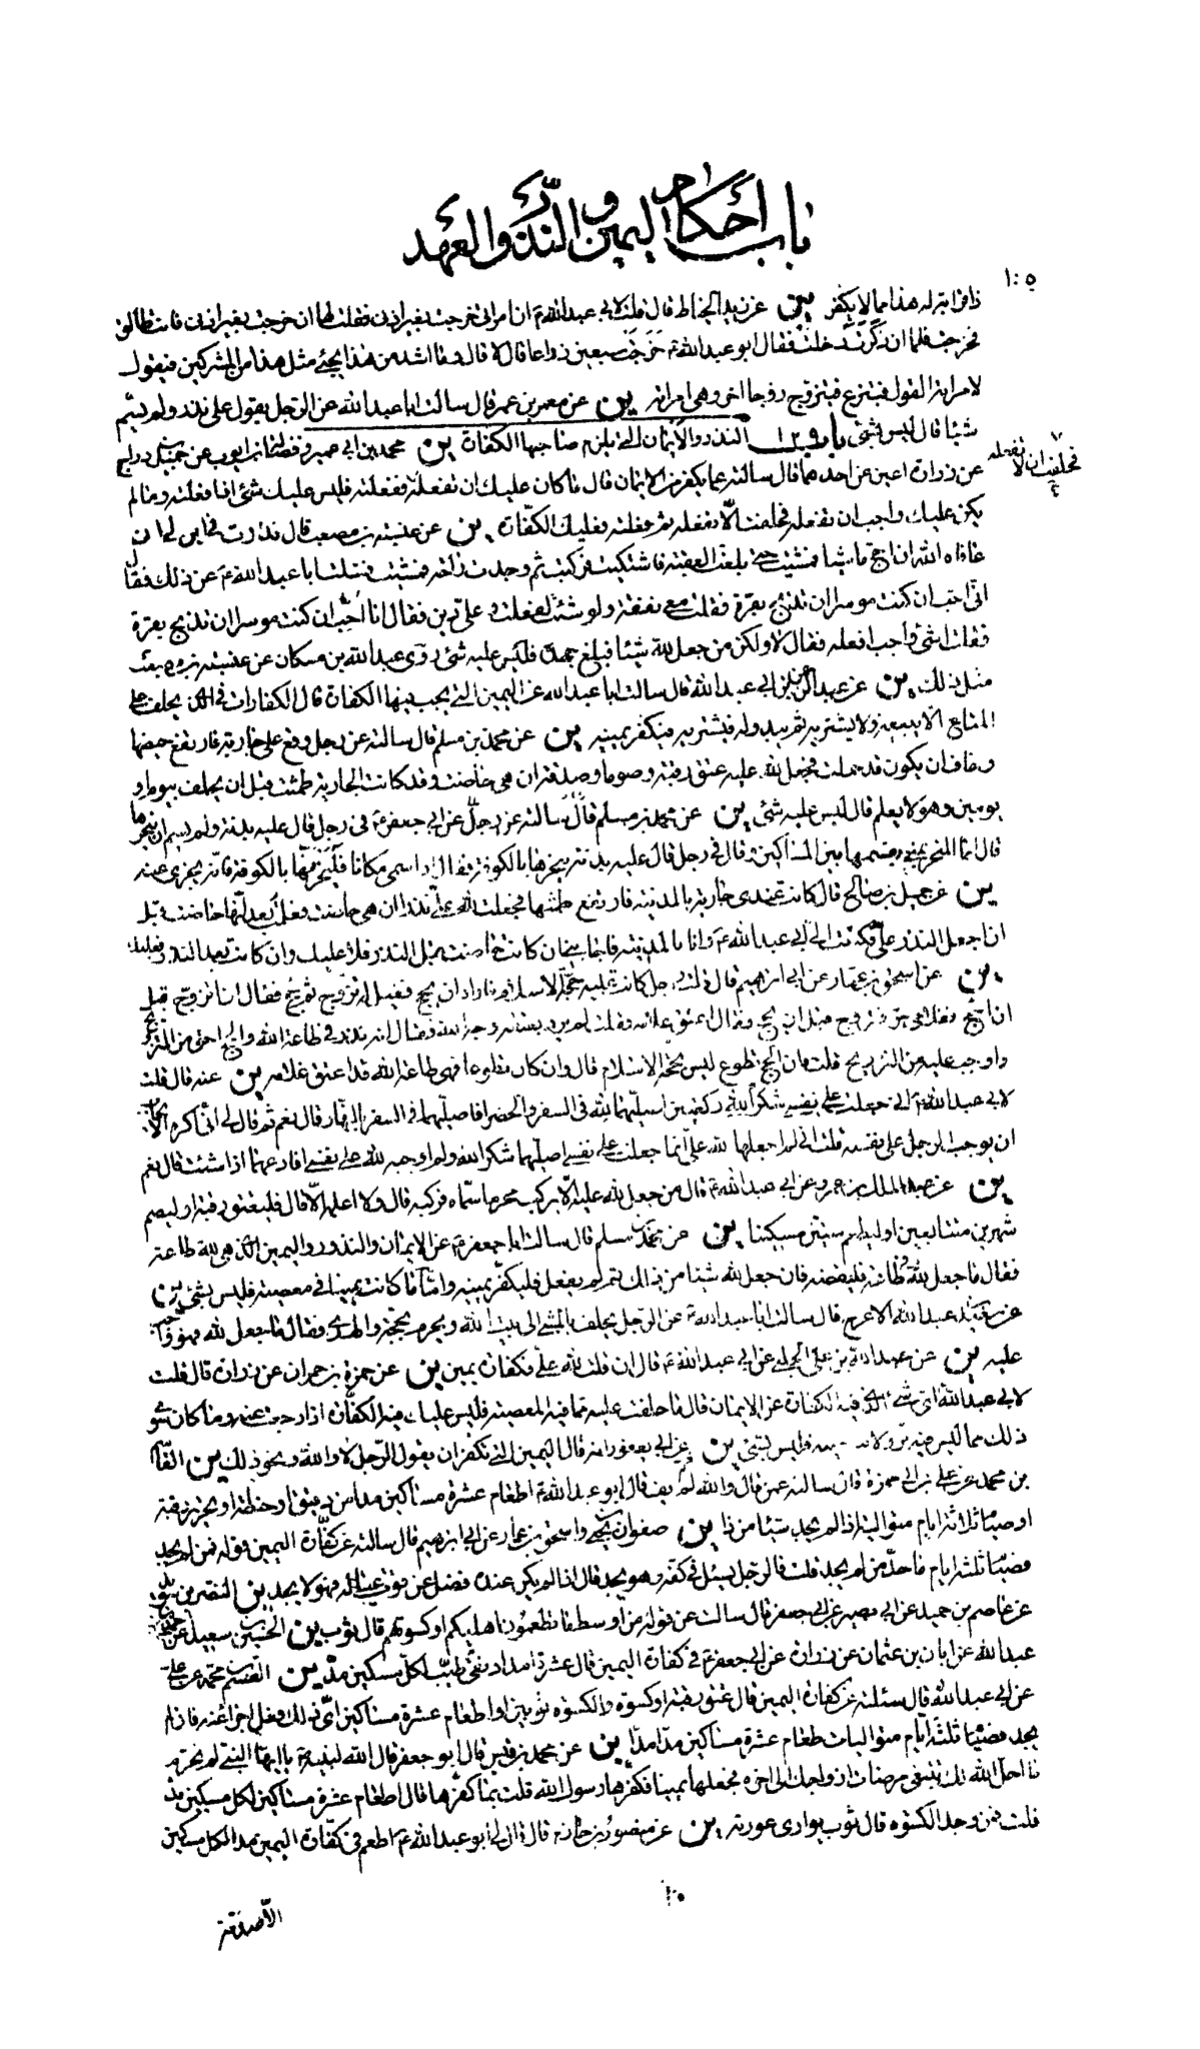 باب أحكام اليمين و النذر والعهد
١٠٥
ذا فرا بتزله هذا مما لا يكفر ين عن بيد الحناط قال قلت لابي عبدالله ان امراتي خرجت بغير اذني فقلت لها ان خرجت بغير اذني فانت طالق
فخرجت فلما ان ذكرت دخلت فقال ابو عبدالله خرجت سبعين ذراعا قال لا قال وما اشد من هذا يجئ مثل هذا من المشركين فيقول
لامراته القول فينتزع فيتزوج زوجا اخر وهي امراته ين عن معمر بن عمر قال سالت ابا عبد الله عن الرجل يقول علي نذر ولم يسم
شيئا قال ليس بشئ باب النذور والأيمان التي يلزم صاحبها الكفارة ين محمد بن ابي عمير وفضالة بن ايوب عن جميل بن دراج
عن زرارة اعين عن احدهما قال سالته عما يكفر من الايمان قال ما كان عليك ان تفعله ففعلته فليس عليك شئ اذا فعلته وما لم
فحلفت ان لا تفعله
يكن عليك واجب ان تفعله فحلفت الا تفعله ثم فعلته فعليك الكفارة ين عن عنبسة بن مصعب قال نذرت في ابن لي ان
عافاه الله ان احج ماشيا فمشيت حتى بلغت العقبة فاشتكيت فركبت ثم وجدت راحة فمشيت فسئلت ابا عبد الله عن ذلك فقال
اني احب ان كنت موسرا ان تذبح بقرة فقلت معي نفقة ولو شئت لفعلت وعلي دين فقال انا احب ان كنت موسرا ان تذبح بقرة
فقلت اشئ واجب افعله فقال لا ولكن من جعل لله شيئا فبلغ جهده فليس عليه شئ روى عبد الله بن مسكان عن عنبسة بن مصعب
مثل ذلك ين عن عبد الرحمن بن ابي عبد الله قال سالت ابا عبد الله عن اليمين التي يجب فيها الكفارة قال الكفارات في الذي يحلف على
المتاع الا يبيعه ولا يشتريه ثم يبدو له فيشتريه فيكفر يمينه ين عن محمد بن مسلم قال سالته عن رجل وقع على جارية فارتفع حيضها
وخاف ان يكون قد حملت فجعل لله عليه عتق رقبة وصوما وصدقة ان هي حاضت وقد كانت الجارية طمثت قبل ان يحلف بيوم او
يومين وهو لا يعلم قال ليس عليه شئ ين عن محمد بن مسلم قال سالته عن رجل عن ابي جعفر في رجل قال عليه بدنة ولم يسم اين ينحرها
قال انما المنحر بمنى يقسمها بين المساكين وقال في رجل قال عليه بدنة ينحرها بالكوفة فقال اذا سمى مكانا فلينحر فيه بالكوفة فانه يجزي عنه
ين عن جميل بن صالح قال كانت عندي جارية بالمدينة فارتفع طمثها فجعلت لله علي نذرا ان هي حاضت فعلمت بعد انها حاضت قبل
ان اجعل النذر علي فكتبت الى ابي عبد الله وانا بالمدينة فاجابني ان كانت حاضت قبل النذر فلا عليك وان كانت بعد النذر فعليك
ين عن اسحق بن عمار عن ابي ابرهيم قال قلت رجل كانت عليه حجة الاسلام فاراد ان يحج فقيل له تزوج ثم حج فقال ان تزوج قبل
ان احج فغلامي حر فتزوج قبل ان يحج فقال اعتق غلامه فقلت لم يرد بعتقه وجه الله فقال انه نذر في طاعة الله والحج احق من التزويج
واوجب عليه من التزويج قلت فان الحج تطوع ليس بحجة الاسلام قال وان كان تطوعا فهي طاعة الله قد اعتق غلامه ين عنه قال قلت
لابي عبد الله اني جعلت على نفسي شكرا لله ركعتين اصليهما لله في السفر والحضر افاصليهما في السفر بالنهار قال نعم ثم قال لي اني اكره الايجاب
ان يوجب الرجل على نفسه قلت اني لم اجعلها لله علي انما جعلت على نفسي اصليهما شكرا لله ولم اوجبه لله على نفسي افادعهما اذا شئت قال نعم
ين عن عبد الملك بن عمرو عن ابي عبد الله قال من جعل لله عليه الا يركب محرما سماه فركبه قال ولا اعلمه الا قال فليعتق رقبة او ليصم
شهرين متتابعين او ليطعم ستين مسكينا ين عن محمد بن مسلم قال سالت ابا جعفر عن الايمان والنذور واليمين التي هي لله طاعة
فقال ما جعل لله في طاعة فليقضه فان جعل لله شيئا من ذلك ثم لم يفعل فليكفر يمينه واما ما كانت يمينا في معصية فليس بشئ ين
عن عبد الله الاعرج قال سالت ابا عبد الله عن الرجل يحلف بالمشي الى بيت الله ويحرم بحجة والهدي فقال ما جعل لله فهو واجب
عليه ين عن عبد الله بن علي الحلبي عن ابي عبد الله قال ان قلت لله علي فكفارة يمين ين عن حمزة بن حمران عن زرارة قال قلت
لابي عبد الله اي شئ الذي فيه الكفارة عن الايمان قال ما حلفت عليه مما فيه المعصية فليس عليك فيه الكفارة اذا رجعت عنه وما كان سوى
ذلك مما ليس فيه بر ولا معصية فليس بشئ ين عن ابي يعفور انه قال اليمين التي تكفر ان يقول الرجل لا والله ونحو ذلك ين القاسم
بن محمد عن علي بن ابي حمزة قال سالته عمن قال والله ثم لم يف قال ابو عبد الله اطعام عشرة مساكين مدا من دقيق او حنطة او تحرير رقبة
او صيام ثلاثة ايام متوالية اذا لم يجد شيئا من ذا ين صفوان بن يحيى واسحق بن عمار عن ابي ابرهيم قال سالته عن كفارة اليمين قوله فمن لم يجد
فصيام ثلثة ايام ما حد من لم يجد قلت فالرجل يسئل في كفه وهو يجد قال اذا لم يكن عنده فضل عن قوت عياله فهو لا يجد ين النضر بن سويد
عن عاصم بن حميد عن ابي بصير عن ابي جعفر قال سالت عن قوله من اوسط ما تطعمون اهليكم او كسوتهم قال ثوب ين الحسين بن سعيد عن
عبد الله عن ابان بن عثمان عن زرارة عن ابي جعفر في كفارة اليمين قال عشرة امداد نقي طيب لكل مسكين مد ين القسم بن محمد عن علي
عن ابي عبد الله قال سئلته عن كفارة اليمين قال عتق رقبة او كسوة والكسوة ثوبين او اطعام عشرة مساكين اي ذلك فعل اجزأ عنه فان لم
يجد فصيام ثلثة ايام متواليات طعام عشرة مساكين مدا مدا ين عن محمد بن قيس قال ابو جعفر قال الله لنبيه يا ايها النبي لم تحرم
ما احل الله لك تبتغي مرضات ازواجك الى اخره فجعلها يمينا فكفرها رسول الله قلت بما كفرها قال اطعام عشرة مساكين لكل مسكين مد
قلت فمن وجد الكسوة قال ثوب يواري عورته ين عن منصور بن حازم قال قال لي ابو عبد الله اطعم في كفارة اليمين مدا لكل مسكين
الا صدقة